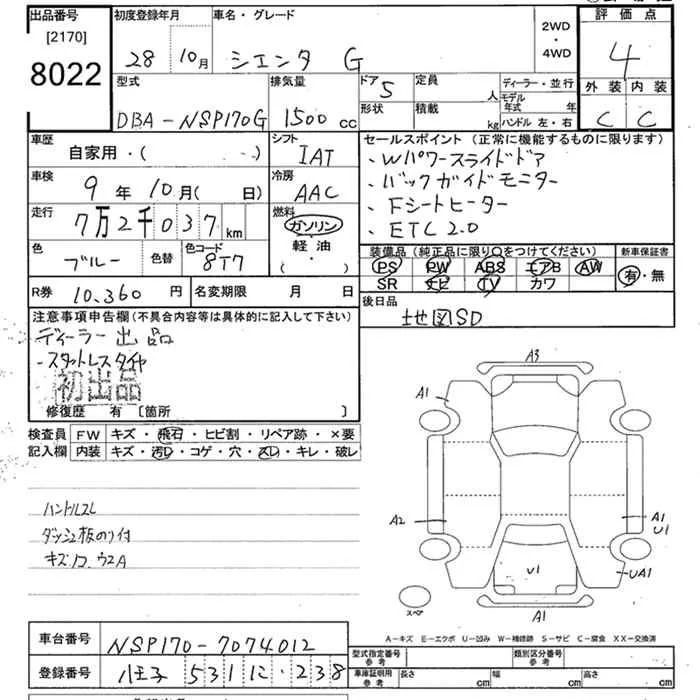 出品番号
[2170]
8022
初度登録年月
28 10月
車名・グレード
シエンタ G
2WD
・
4WD
評価点
4
外装 内装
C C
型式
DBA-NSP170G
排気量
1500 cc
ドア 5
形状
定員
人
積載
kg
ディーラー・並行
モデル年式 年
ハンドル 左・右
車歴
自家用・( )
シフト
IAT
車検
9年10月( 日)
冷房
AAC
走行
7万2千037 km
燃料
ガソリン
軽油
( ・ )
色
ブルー
色替
色コード
8T7
セールスポイント(正常に機能するものに限ります)
、Wパワースライドドア
、バックガイドモニター
、Fシートヒーター
、ETC2.0
装備品(純正品に限り○をつけてください)
PS PW ABS エアB AW
SR ナビ TV カワ
新車保証書
有・無
R券 10,360 円
名変期限 月 日
後日品
地図SD
注意事項申告欄(不具合内容等は具体的に記入して下さい)
ディーラー出品
・スタットレスタイヤ
初出品
修復歴 有 [箇所 ]
検査員
記入欄
FW キズ・飛石・ヒビ割・リペア跡・×要
内装 キズ・汚レ・コゲ・穴・スレ・キレ・破レ
ハンドルスレ
ダッシュ板のり付
キズ
A3
A1
A2
A1
U1
UA1
U1
スペア
A1
A-キズ E-エクボ U-凹み W-補修跡 S-サビ C-腐食 XX-交換済
車台番号 NSP170-7074012
登録番号 八王子 531 に・238
型式指定番号
参考
類別区分番号
参考
車庫証明用
参考
長さ cm 幅 cm 高さ cm